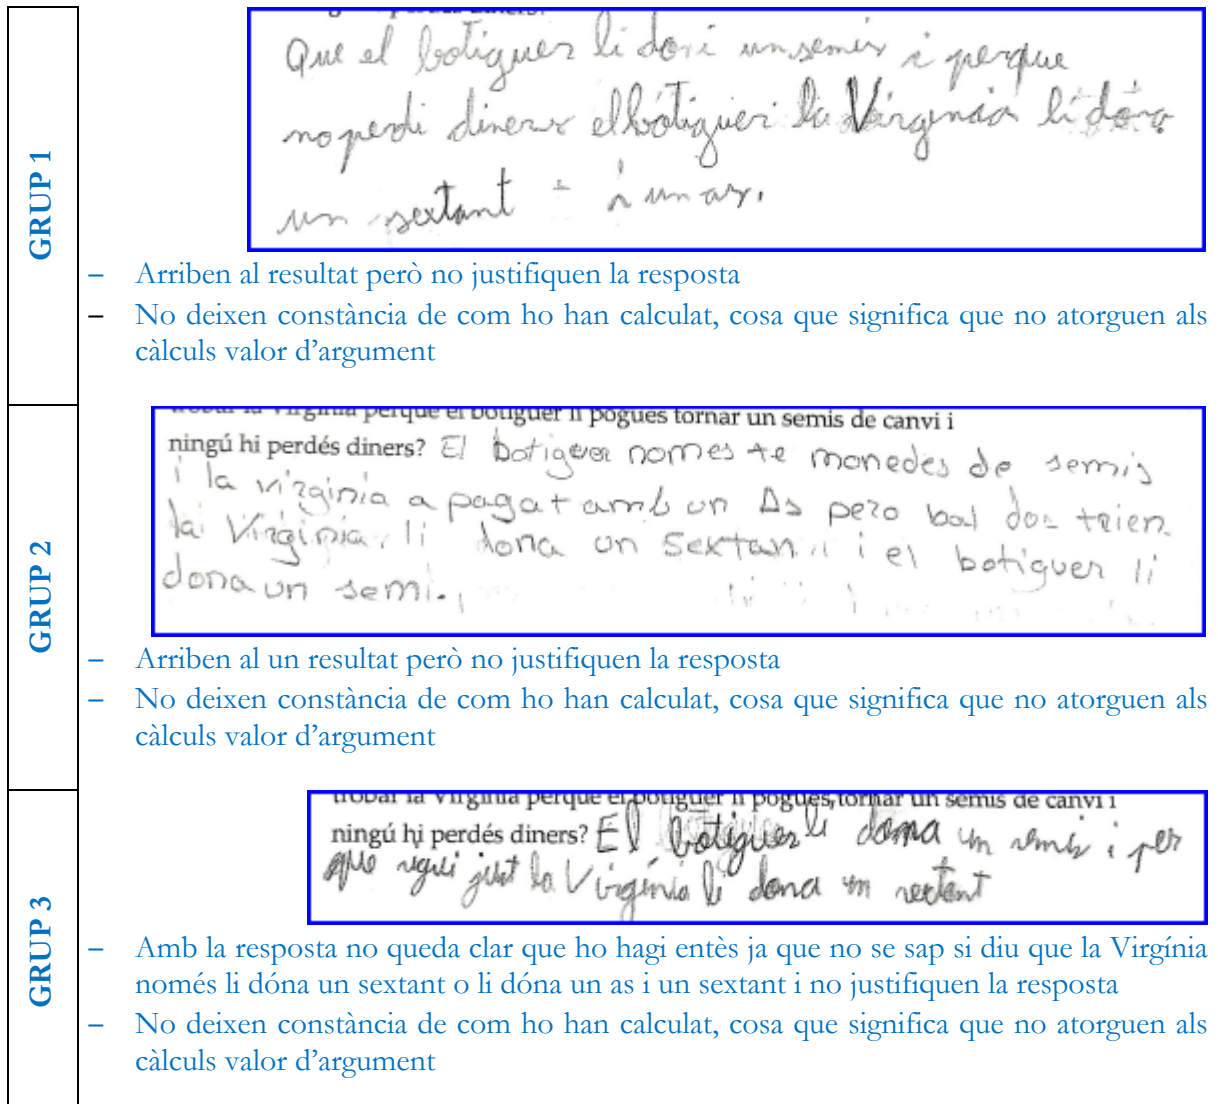 GRUP 1
Que el botiguer li doni un semis i perque
no perdi diners el botiguer la Virginia li dóna
un sextant i un as.
– Arriben al resultat però no justifiquen la resposta
– No deixen constància de com ho han calculat, cosa que significa que no atorguen als
càlculs valor d'argument
GRUP 2
trobar la Virgínia perquè el botiguer li pogués tornar un semis de canvi i
ningú hi perdés diners? El botiguer nomes te monedes de semis
i la virginia a pagat amb un As pero bal dos trien.
la Virginia li dona un sextan i el botiguer li
dona un semi.
– Arriben al un resultat però no justifiquen la resposta
– No deixen constància de com ho han calculat, cosa que significa que no atorguen als
càlculs valor d'argument
GRUP 3
trobar la Virgínia perquè el botiguer li pogués tornar un semis de canvi i
ningú hi perdés diners? El botiguer li dona un semis i per
que sigui just la Virgínia li dona un sextant
– Amb la resposta no queda clar que ho hagi entès ja que no se sap si diu que la Virgínia
només li dóna un sextant o li dóna un as i un sextant i no justifiquen la resposta
– No deixen constància de com ho han calculat, cosa que significa que no atorguen als
càlculs valor d'argument